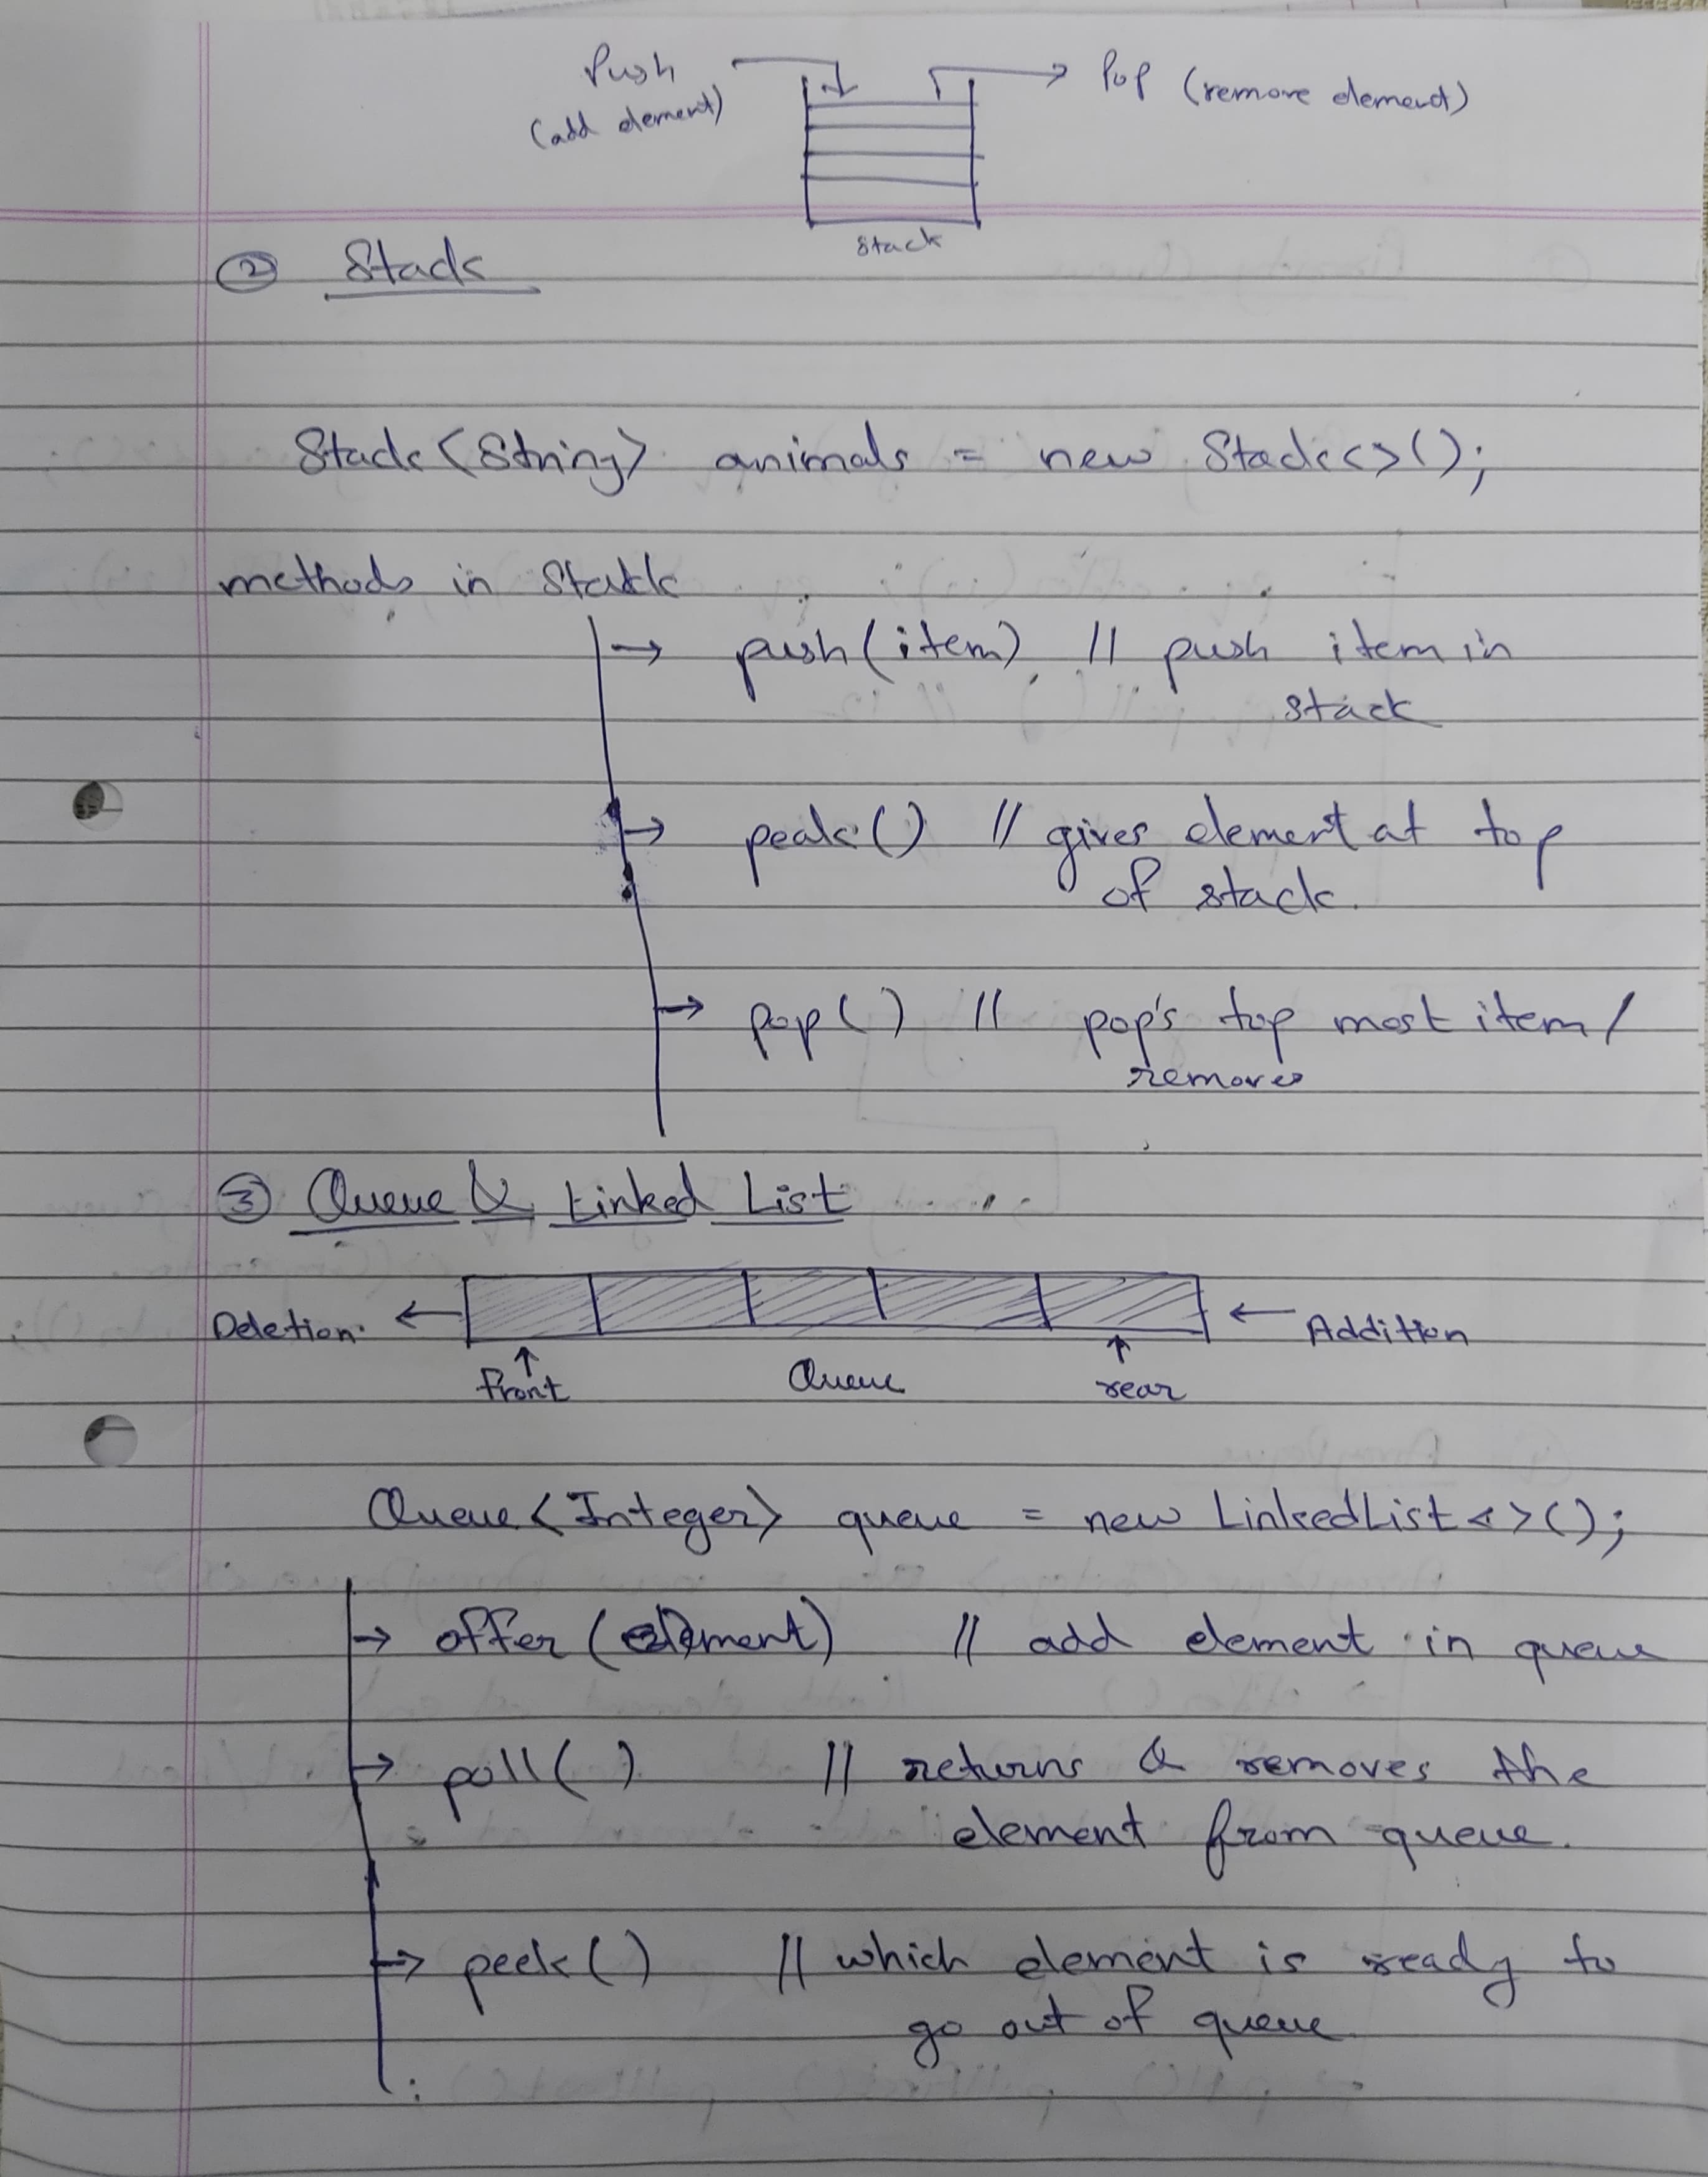 Push
Pop (remove element)
(add element)
Stack
② Stack
Stack<String> animals = new Stack<>();
methods in Stack
→ push(item) // push item in
stack
→ peak() // gives element at top
of stack.
→ pop() // pop's top most item /
removes
③ Queue & Linked List
Deletion. ← ← Addition
↑ ↑
front Queue rear
Queue<Integer> queue = new LinkedList<>();
→ offer(element) // add element in queue
→ poll() // returns & removes the
element from queue.
→ peek() // which element is ready to
go out of queue